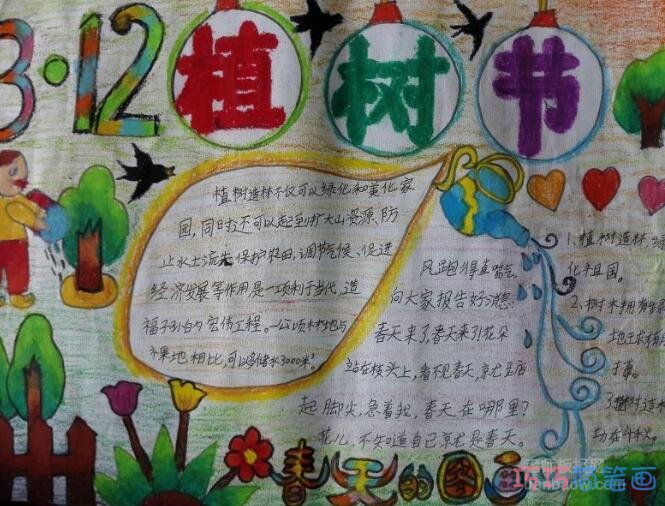 3·12 植树节
植树造林不仅可以绿化和美化家
园,同时还可以起到扩大山资源、防
止水土流失保护农田,调节气候、促进
经济发展等作用,是一项利于当代,造
福子孙的宏伟工程。一公顷林地与
裸地相比,可以多储水3000米³
风跑得直喘气
向大家报告好消息:
春天来了,春天来了花朵
站在枝头上,看不见春天,就
起脚尖,急着找,春天在哪里?
花儿,不知道自己就是春天。
1、植树造林,绿
化祖国。
2、树木拥有绿
地球
3、植树造林
功在千秋
春天的图画